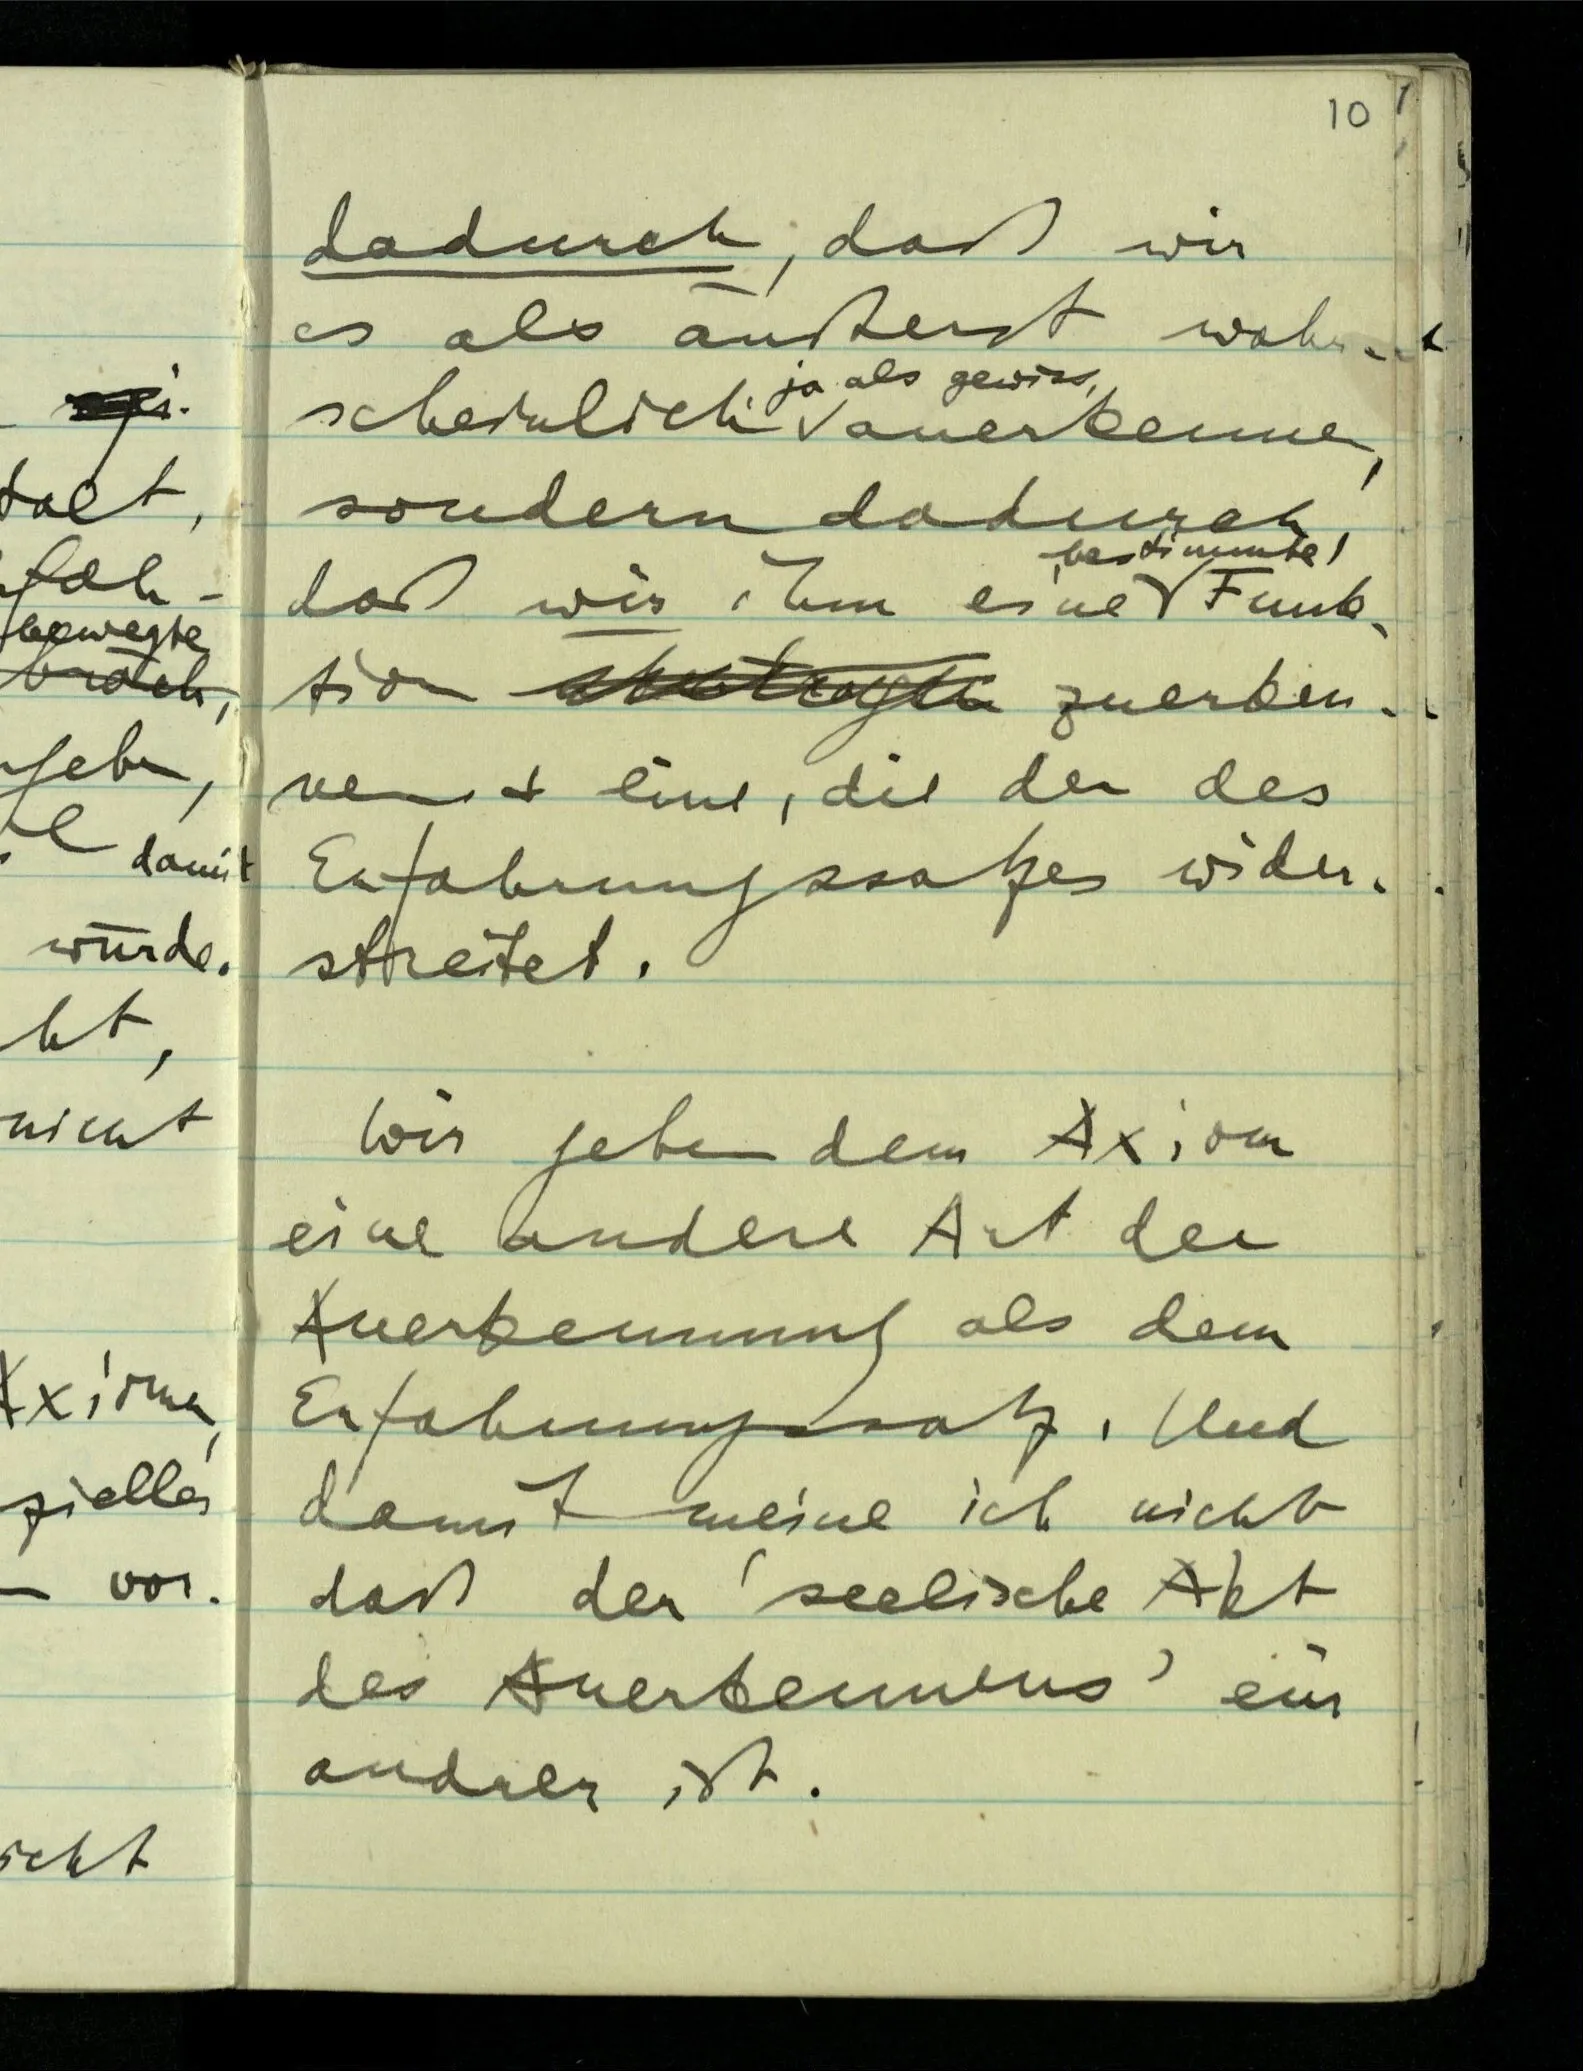 10
dadurch, daß wir
es als äußerst wahr-
scheinlich ja als gewiss, anerkennen,
sondern dadurch,
daß wir ihm eine bestimmte Funk-
tion zuerken-
nen & eine, die der des
Erfahrungssatzes wider-
streitet.
Wir geben dem Axiom
eine andere Art der
Anerkennung als dem
Erfahrungssatz. Und
damit meine ich nicht
daß der 'seelische Akt
des Anerkennens' ein
andrer ist.
bewegte
damit
würde.
nicht
Axiomen,
vor.